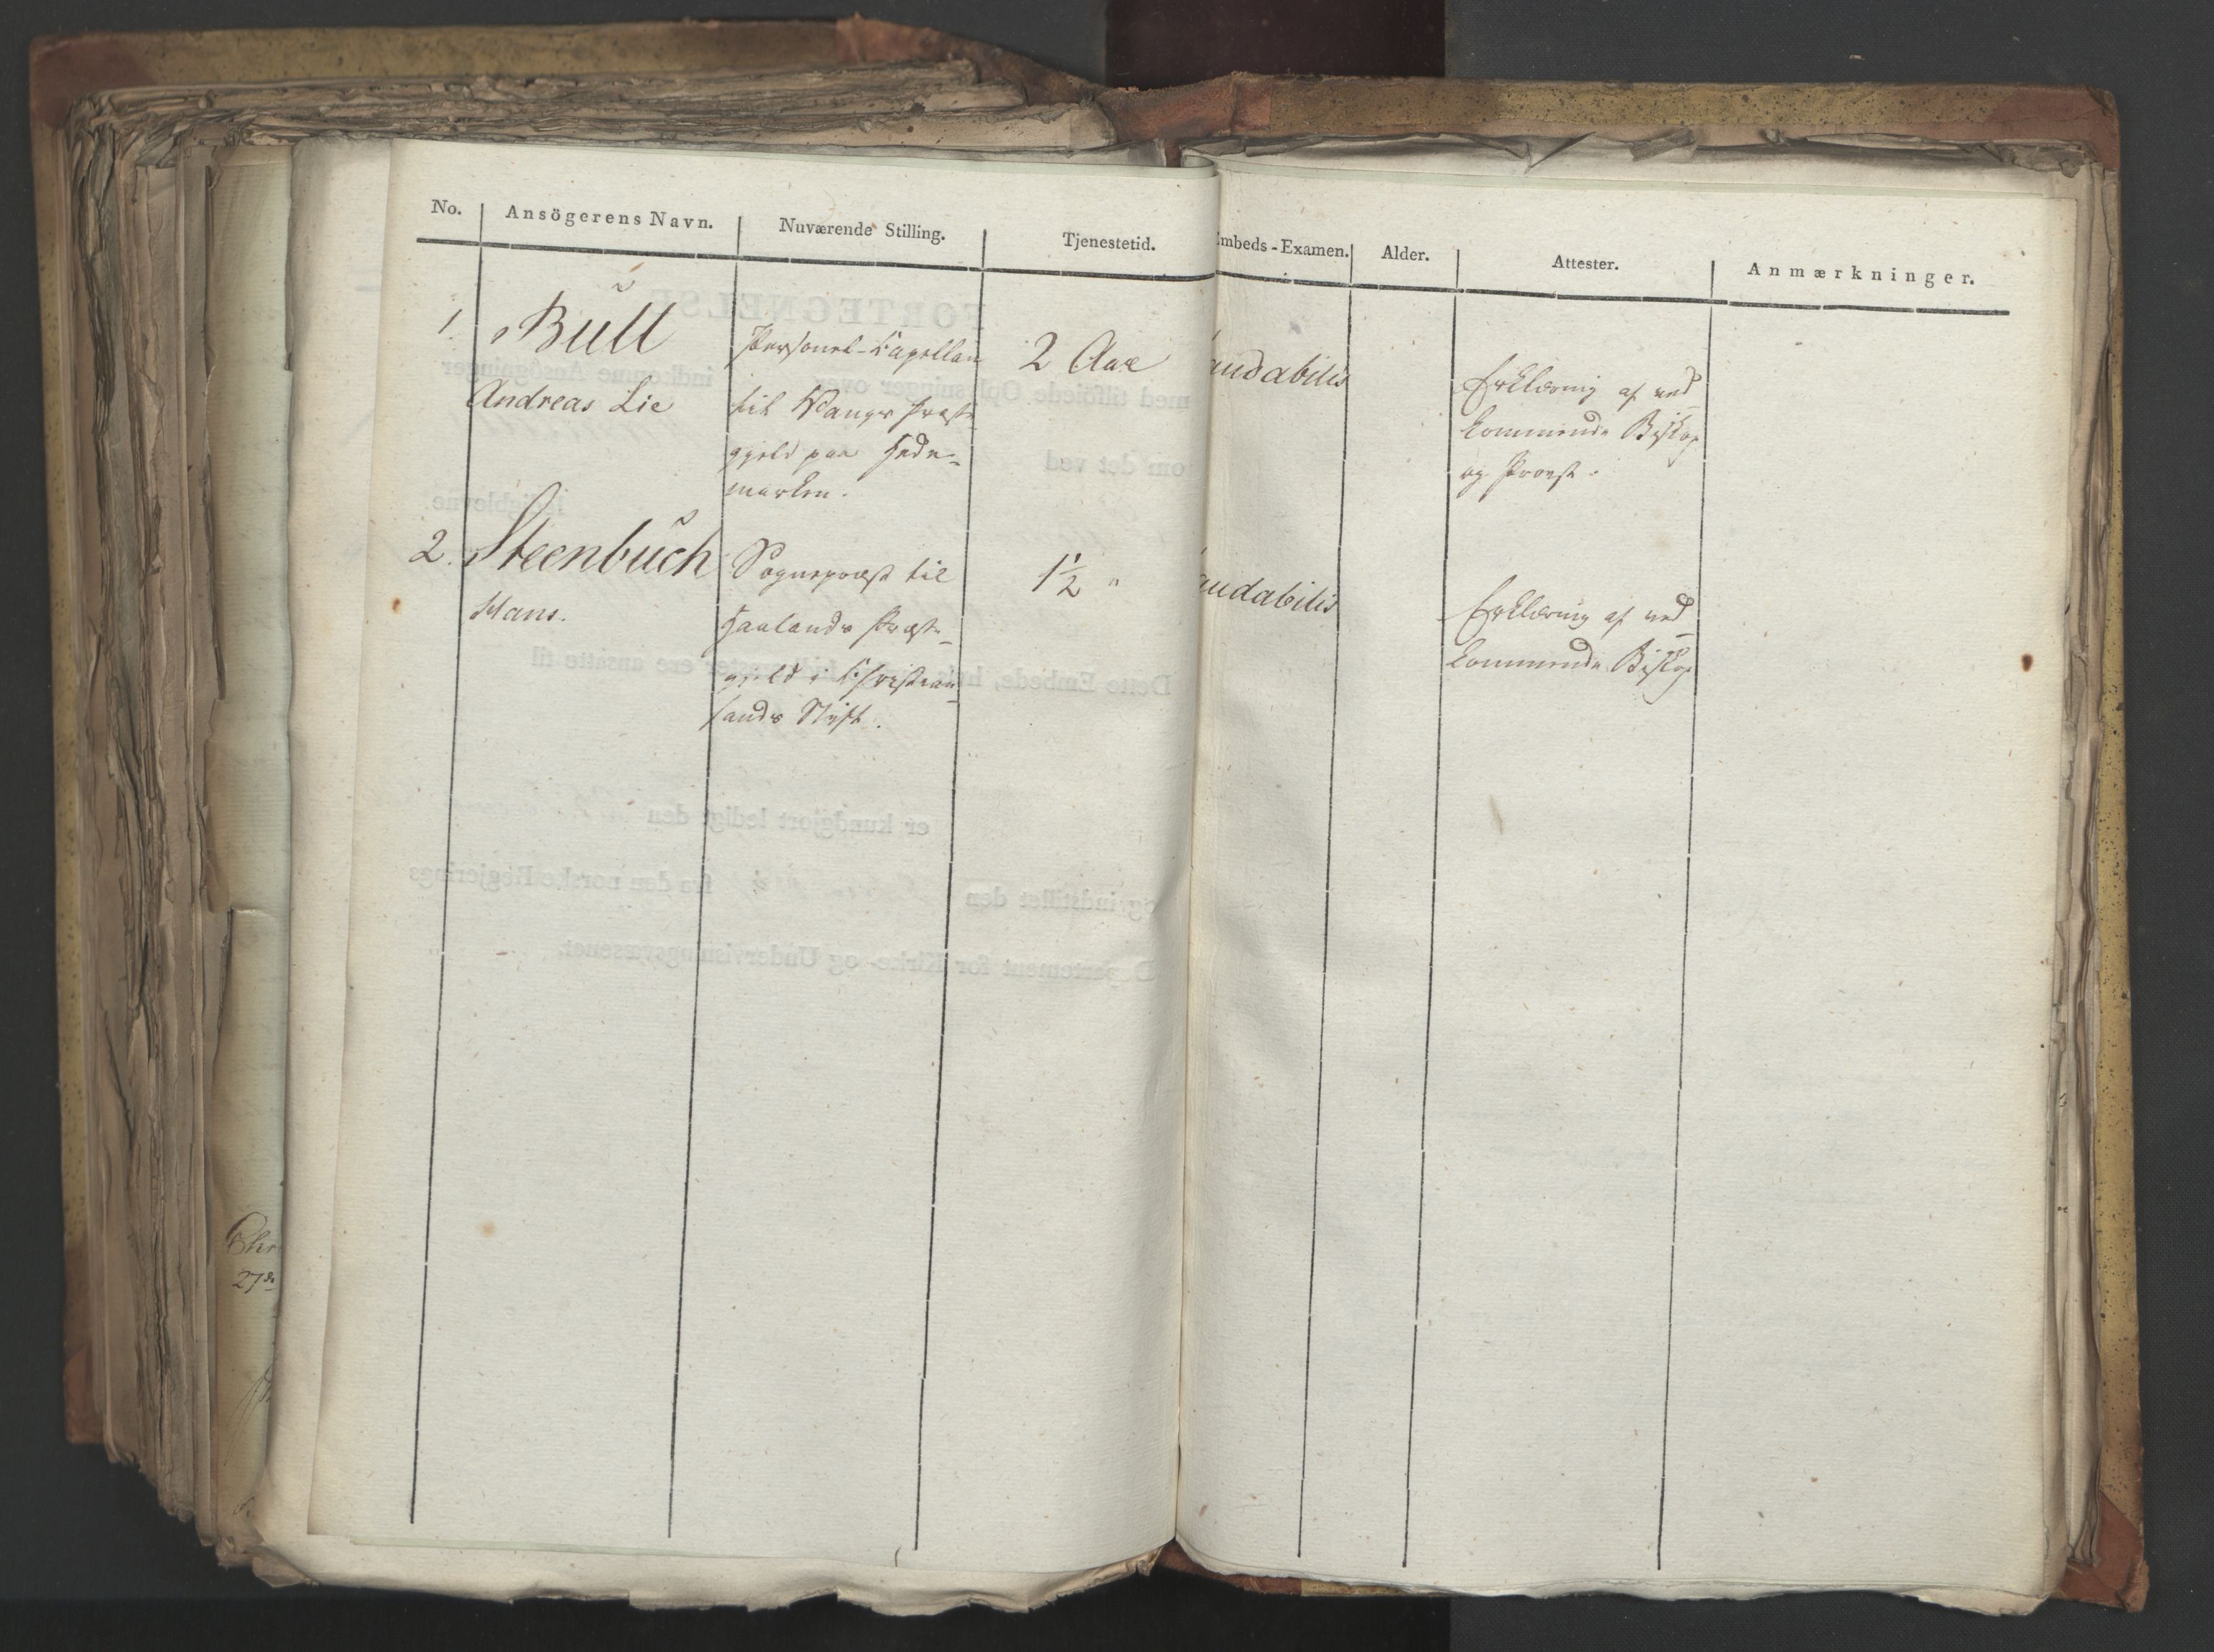 No. Ansögerens Navn. Nuværende Stilling. Tjenestetid. Embeds-Examen. Alder. Attester. Anmærkninger.
1. Bull
Andreas Lie
Personel-Capellan
til Wangs Præste-
gjeld paa Hede-
marken.
2 Aar
audabilis
Erklæring af ved
kommende Biskop
og Provst.
2. Steenbuch
Hans.
Sognepræst til
Haalands Præste-
gjeld i Christian
sands Stift.
1½ "
audabilis
Erklæring af ved
kommende Biskop
Chr
27de